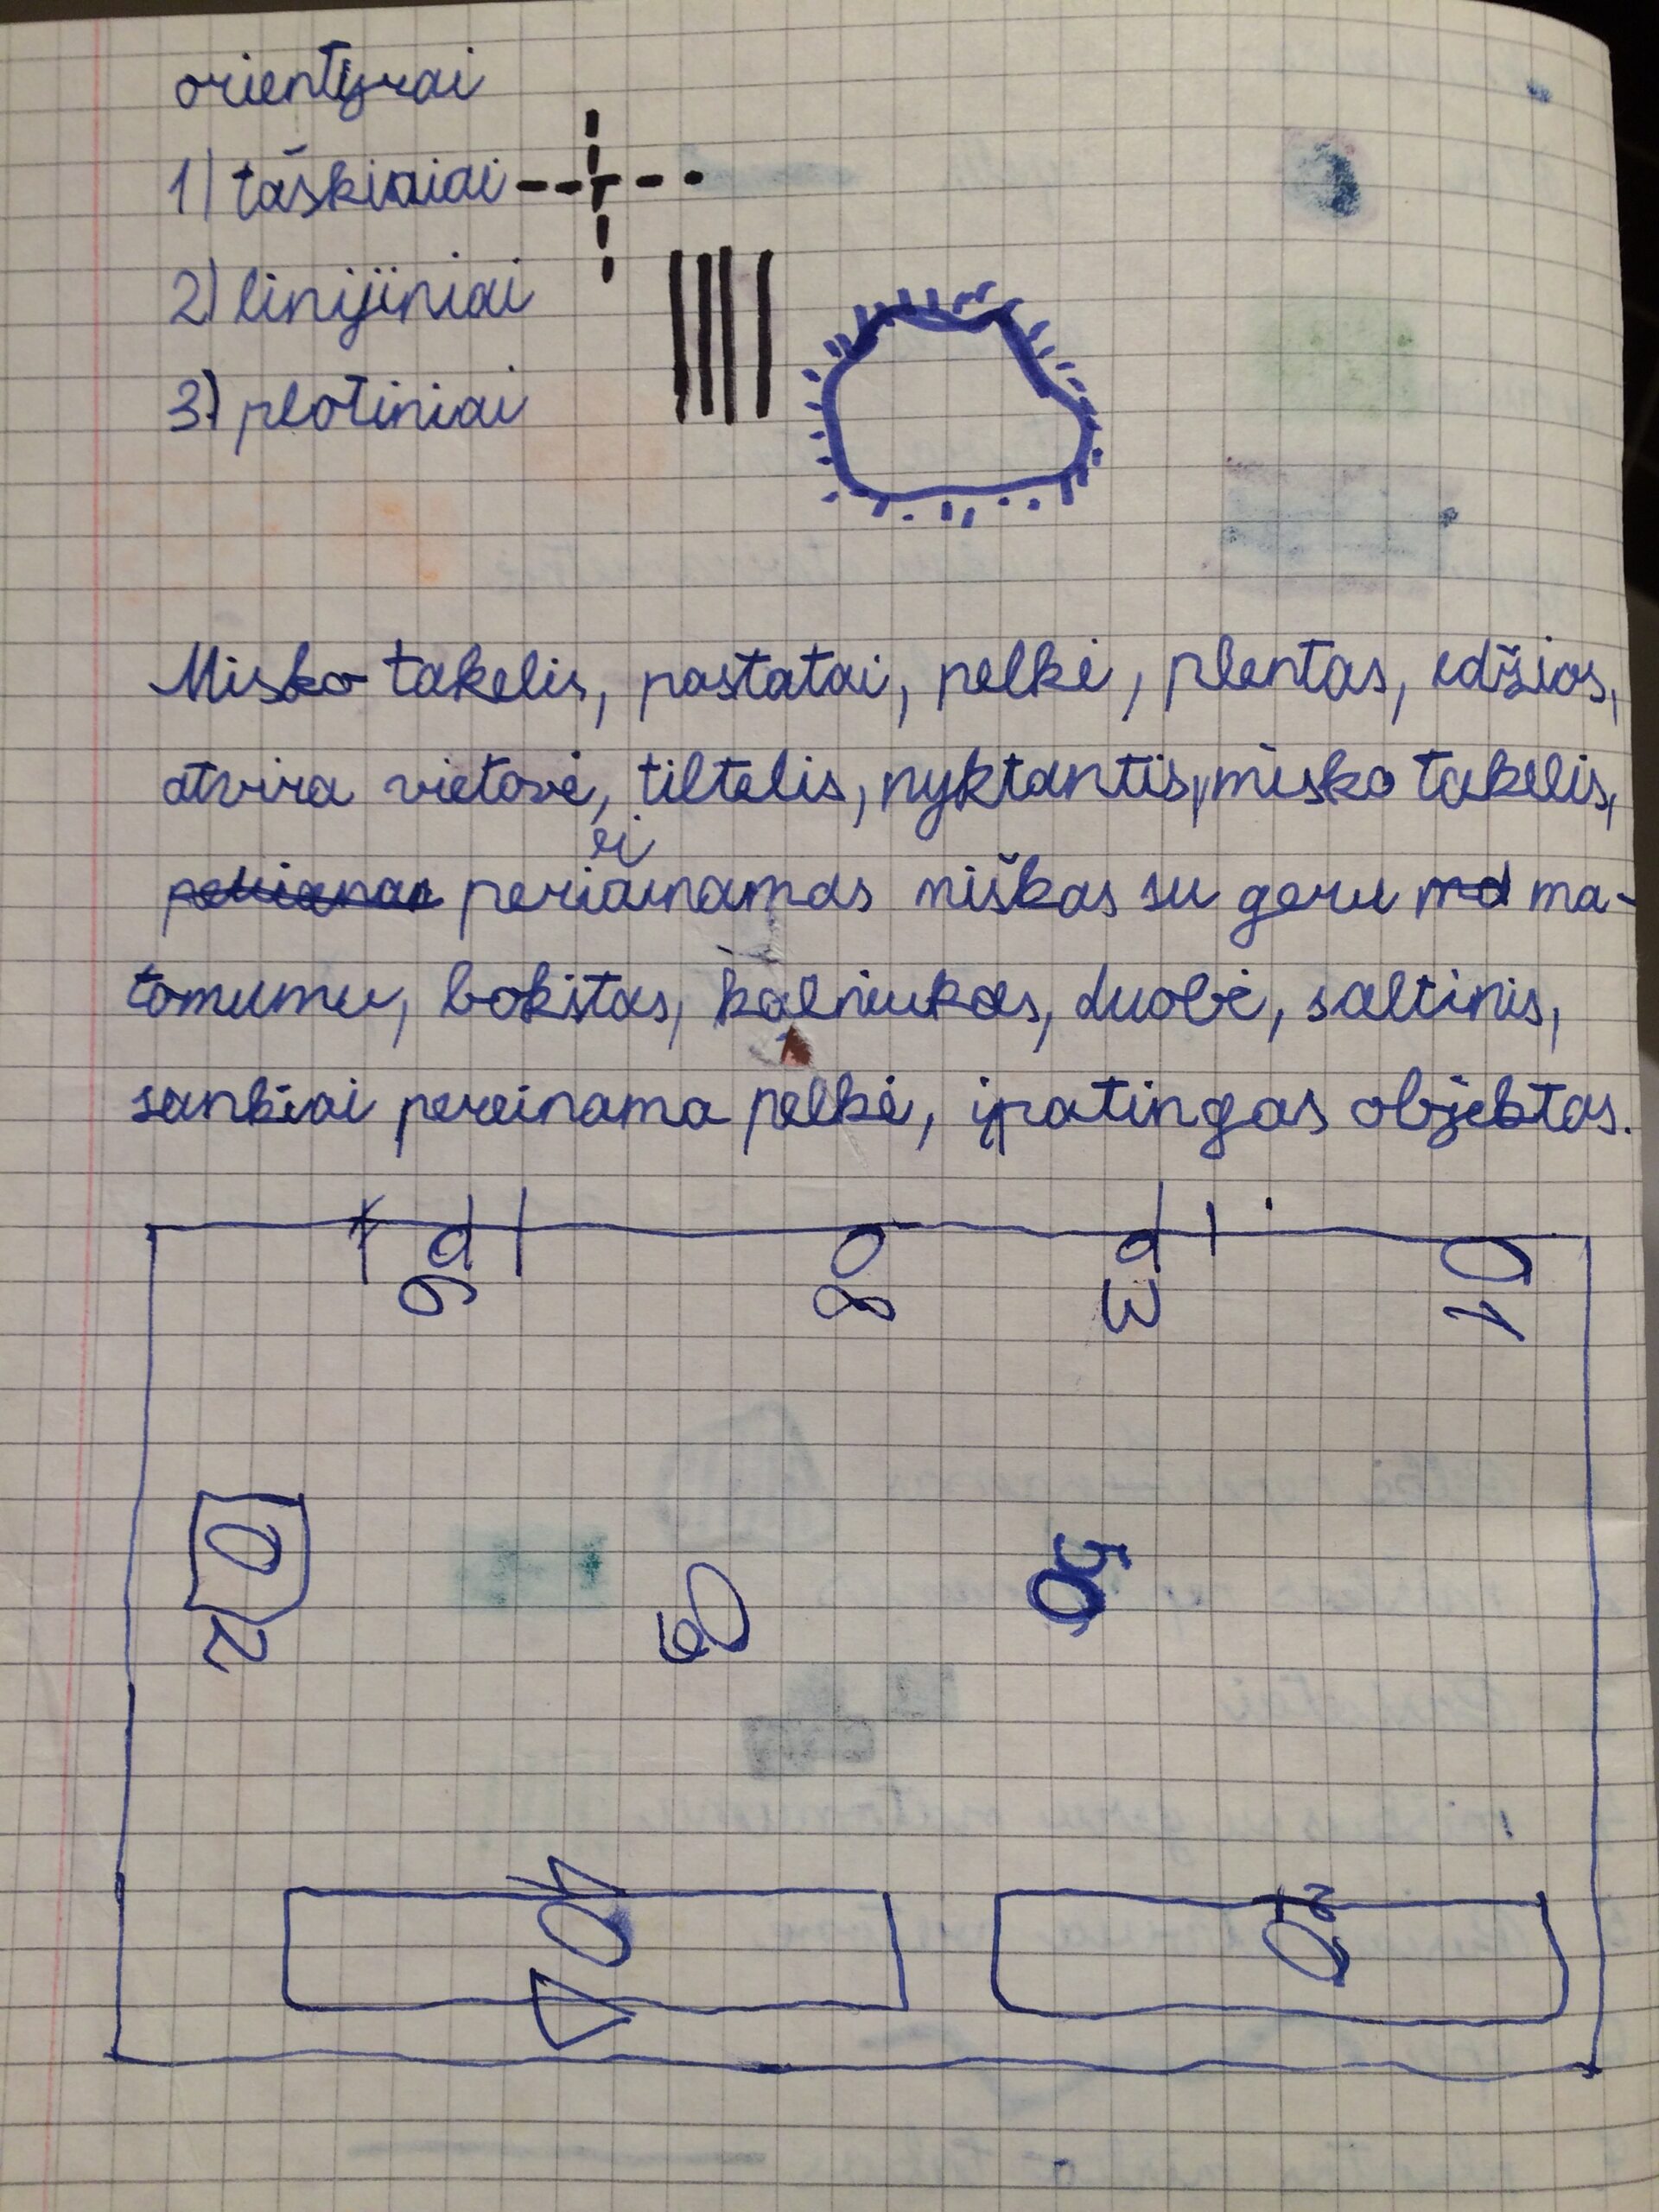 orientyrai
1) taškiniai
2) linijiniai
3) plotiniai
Misko takelis, pastatai, pelkė, plentas,
atvira vietovė, tiltelis, nyktantis, misko takelis,
ei
periainamas miškas su geru ma-
tomumu, bokštas, kalniukas, duobė, saltinis,
sunkiai pereinama pelkė, ypatingas objektas.
6 8 3 1
2 9 5